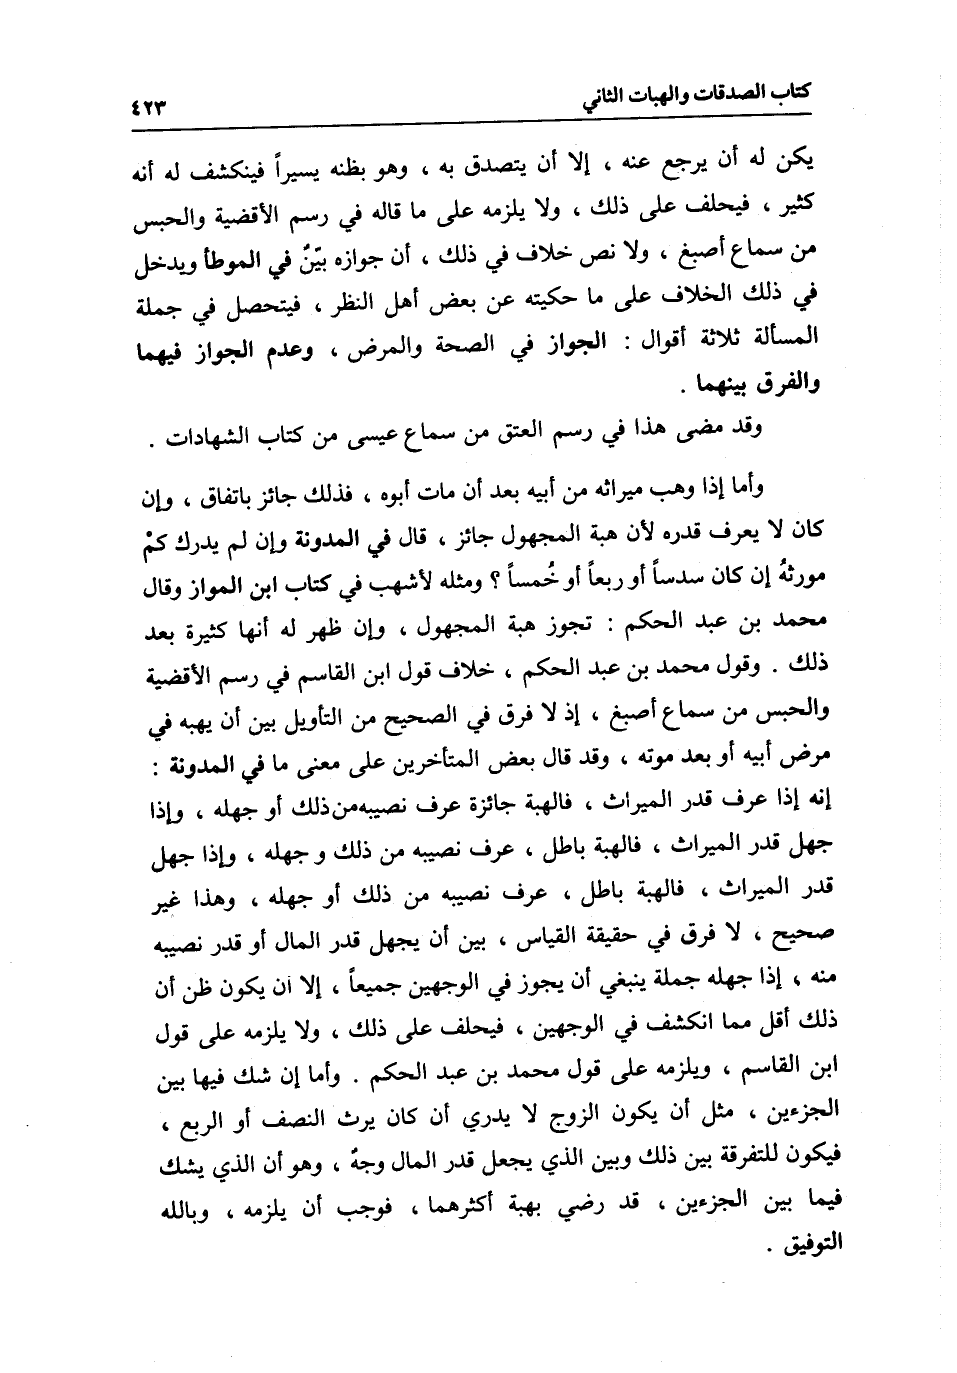 كتاب الصدقات والهبات الثاني
٤٢٣
يكن له أن يرجع عنه ، إلا أن يتصدق به ، وهو بظنه يسيراً فينكشف له أنه
كثير ، فيحلف على ذلك ، ولا يلزمه على ما قاله في رسم الأقضية والحبس
من سماع أصبغ ، ولا نص خلاف في ذلك ، أن جوازه بيّنٌ في الموطأ ويدخل
في ذلك الخلاف على ما حكيته عن بعض أهل النظر ، فيتحصل في جملة
المسألة ثلاثة أقوال : الجواز في الصحة والمرض ، وعدم الجواز فيهما
والفرق بينهما .
وقد مضى هذا في رسم العتق من سماع عيسى من كتاب الشهادات .
وأما إذا وهب ميراثه من أبيه بعد أن مات أبوه ، فذلك جائز باتفاق ، وإن
كان لا يعرف قدره لأن هبة المجهول جائز ، قال في المدونة وإن لم يدرك كمْ
مورثهُ إن كان سدساً أو ربعاً أو خُمساً ؟ ومثله لأشهب في كتاب ابن المواز وقال
محمد بن عبد الحكم : تجوز هبة المجهول ، وإن ظهر له أنها كثيرة بعد
ذلك . وقول محمد بن عبد الحكم ، خلاف قول ابن القاسم في رسم الأقضية
والحبس من سماع أصبغ ، إذ لا فرق في الصحيح من التأويل بين أن يهبه في
مرض أبيه أو بعد موته ، وقد قال بعض المتأخرين على معنى ما في المدونة :
إنه إذا عرف قدر الميراث ، فالهبة جائزة عرف نصيبه من ذلك أو جهله ، وإذا
جهل قدر الميراث ، فالهبة باطل ، عرف نصيبه من ذلك و جهله ، وإذا جهل
قدر الميراث ، فالهبة باطل ، عرف نصيبه من ذلك أو جهله ، وهذا غير
صحيح ، لا فرق في حقيقة القياس ، بين أن يجهل قدر المال أو قدر نصيبه
منه ، إذا جهله جملة ينبغي أن يجوز في الوجهين جميعاً ، إلا ان يكون ظن أن
ذلك أقل مما انكشف في الوجهين ، فيحلف على ذلك ، ولا يلزمه على قول
ابن القاسم ، ويلزمه على قول محمد بن عبد الحكم . وأما إن شك فيها بين
الجزءين ، مثل أن يكون الزوج لا يدري أن كان يرث النصف أو الربع ،
فيكون للتفرقة بين ذلك وبين الذي يجعل قدر المال وجهٌ ، وهو أن الذي يشك
فيما بين الجزءين ، قد رضي بهبة أكثرهما ، فوجب أن يلزمه ، وبالله
التوفيق .